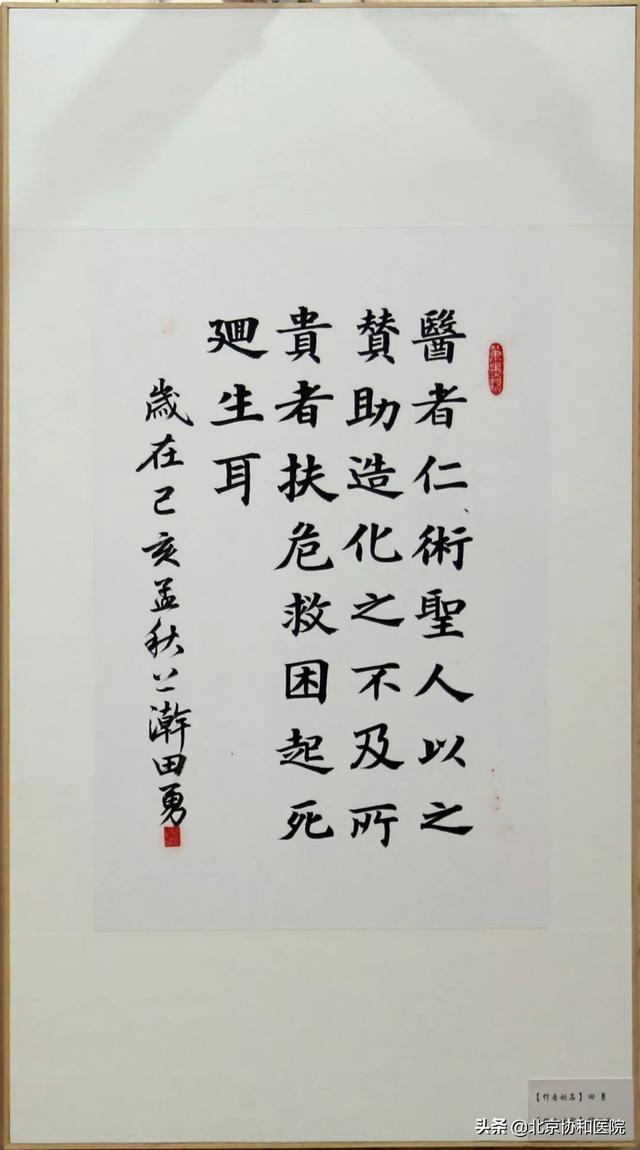 醫者仁術聖人以之
贊助造化之不及所
貴者扶危救困起死
廻生耳
歲在己亥孟秋以澣田勇
【作者姓名】田 勇
头条 @北京协和医院